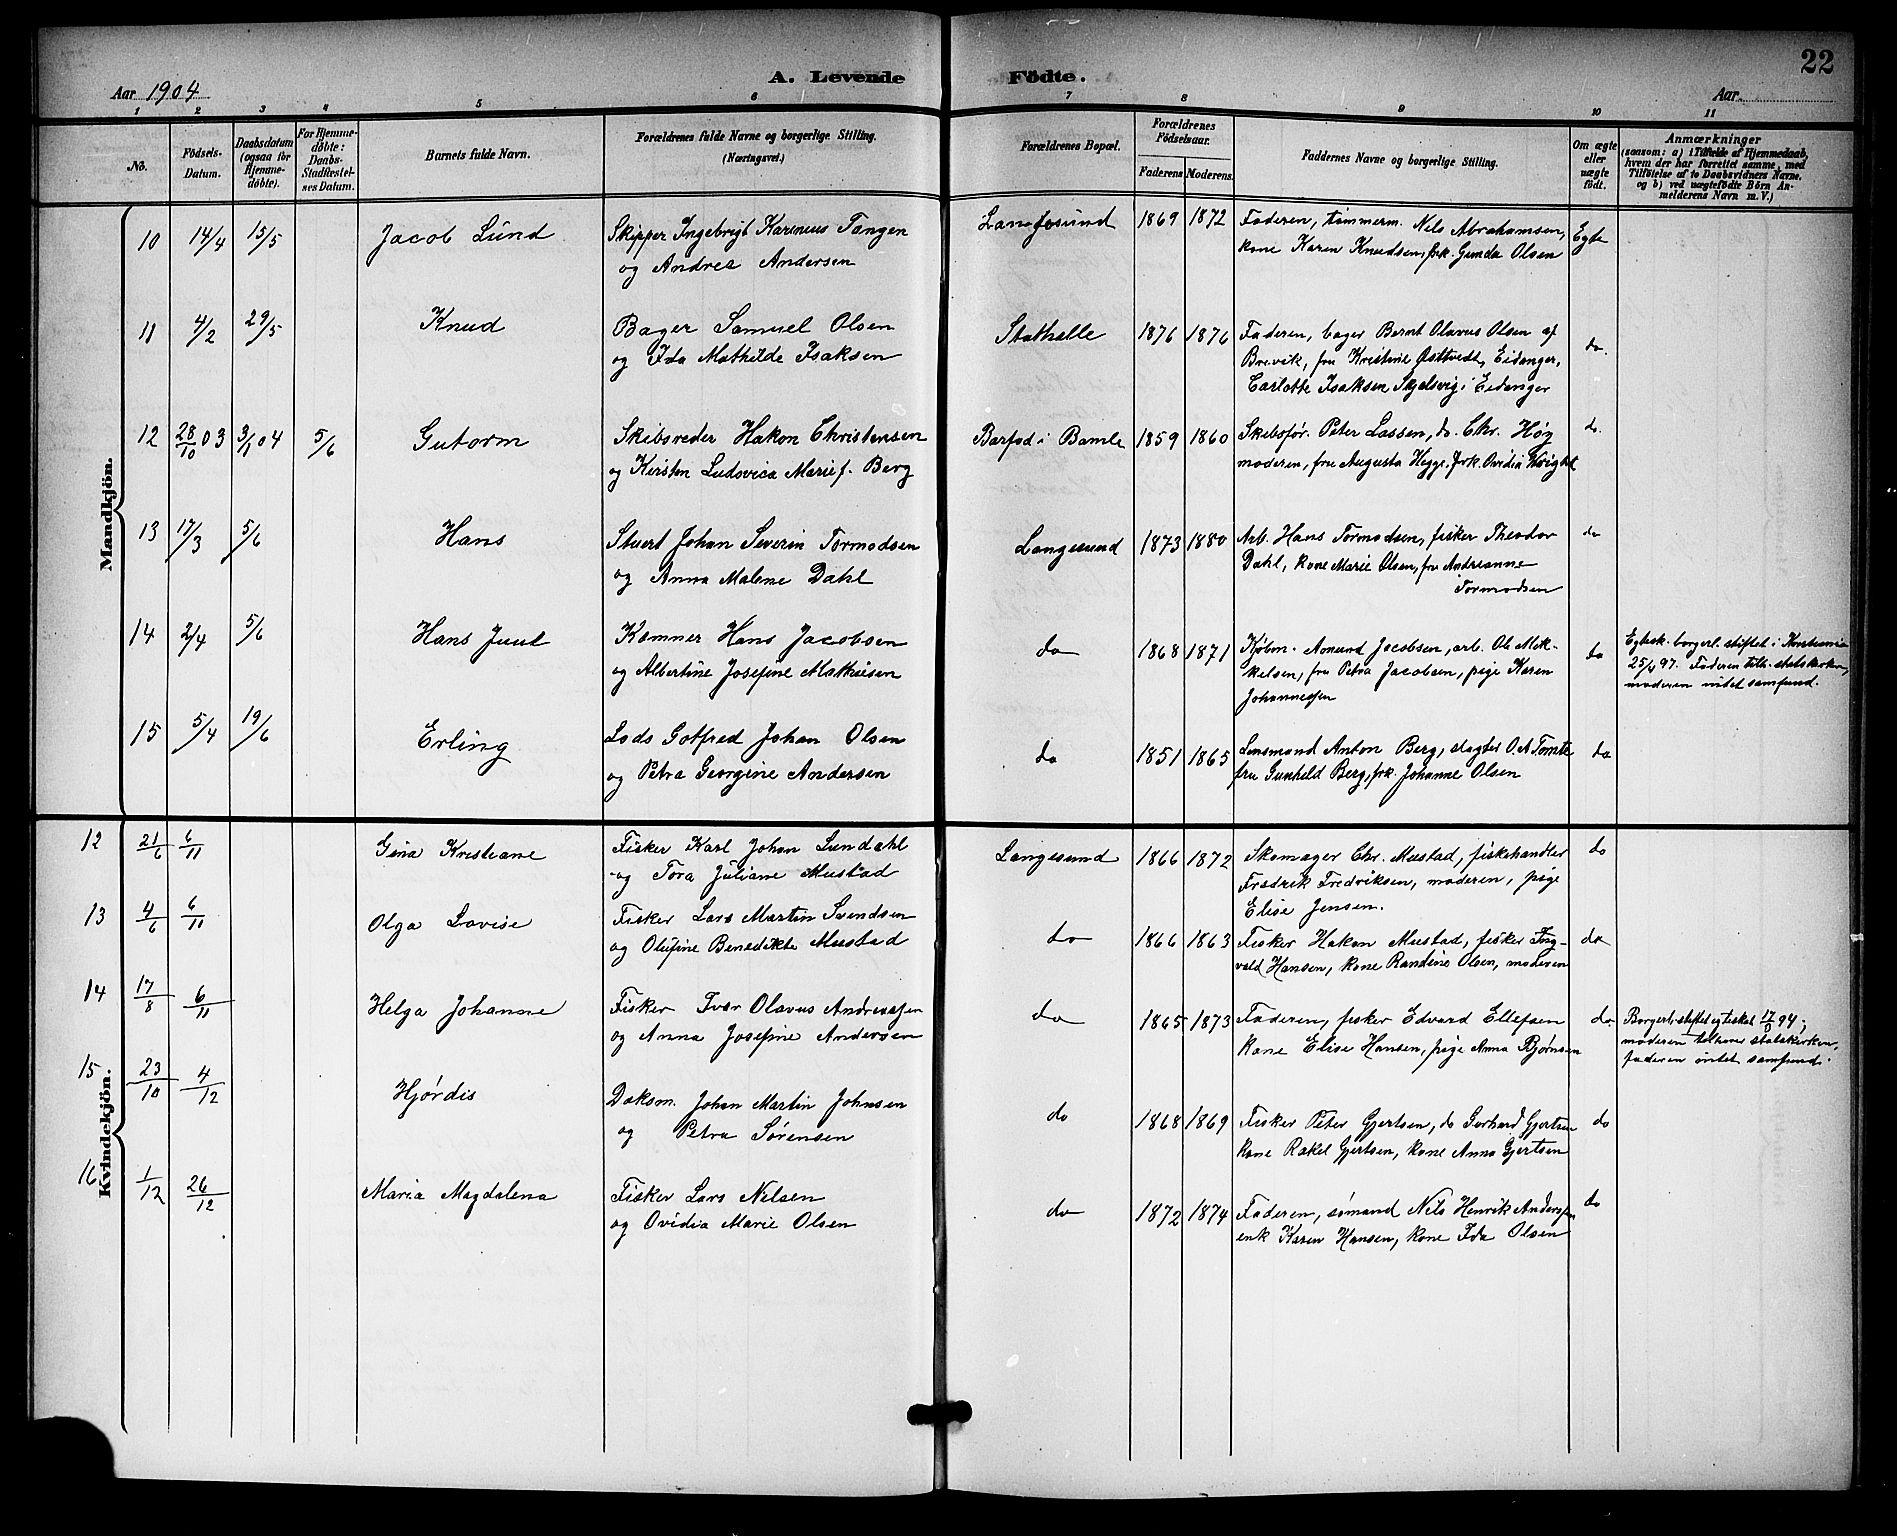 22
A. Levende Födte.
Aar 1904
Aar
1 2 3 4 5 6 7 8 9 10 11
No.
Födsels-
Datum.
Daabsdatum
(ogsaa for
Hjemme-
döbte).
For Hjemme-
döbte:
Daabs-
Stadfæstel-
ses Datum.
Barnets fulde Navn.
Forældrenes fulde Navne og borgerlige Stilling.
(Næringsvei.)
Forældrenes Bopæl.
Forældrenes
Födselsaar.
Faderens Moderens
Faddernes Navne og borgerlige Stilling.
Om ægte
eller
uægte
födt.
Anmærkninger
(saasom: a) i Tilfælde af Hjemmedaab,
hvem der har forrettet samme, med
Tilföielse af to Daabsvidners Navne.
og b) ved uægtefödte Börn An-
melderens Navn m. V.)
Mandkjön.
10 14/4 15/5 Jacob Lund Skipper Ingebrigt Karenius Tangen Langesund 1869 1872 Faderen, tømmerm. Nils Abrahamsen, Egte
og Andrea Andersen kone Karen Knudsen, frk. Gunda Olsen
11 4/2 29/5 Knud Bager Samuel Olsen Stathelle 1876 1876 Faderen, bager Bernt Olavus Olsen af do.
og Ida Mathilde Isaksen Brevik, fru Kristine Østtvedt, Eidanger,
Carlotte Isaksen Skjelsvig i Eidanger
12 28/10 03 3/1 04 5/6 Gutorm Skibsreder Hakon Christensen i Bamle 1859 1860 Skibsfør. Peter Lassen, do. Chr. Høg do.
og Kirsten Ludovica Marie f. Berg moderen, fru Augusta Hegge, frk. Ovidia Wright
13 17/3 5/6 Hans Stuert Johan Severin Tormodsen Langesund 1873 1880 Arb. Hans Tormodsen, fisker Theodor do
og Anna Malene Dahl Dahl, kone Marie Olsen, fru Andrianne
Tormodsen
14 2/4 5/6 Hans Juul Kæmner Hans Jacobsen do 1868 1871 Kjøbm. Amund Jacobsen, arb. Ole Mik- do Egtesk. borgerl. stiftet i Kristiania
og Albertine Josefine Mathisen kelsen, fru Petra Jacobsen, pige Karen 25/4 97. Faderen tilh. statskirken,
Johannessen moderen intet samfund.
15 5/4 19/6 Erling Lods Gotfred Johan Olsen do 1851 1865 Lensmand Anton Berg, slagter O. A. Tomte do
og Petra Georgine Andersen fru Gunhild Berg, frk. Johanne Olsen
Kvindekjön.
12 21/6 6/11 Gina Kristiane Fisker Karl Johan Lundahl Langesund 1866 1872 Skomager Chr. Mustad, fiskehandler do
og Tora Juliane Mustad Fredrik Fredriksen, moderen, pige
Elise Jensen.
13 4/6 6/11 Olga Lovise Fisker Lars Martin Svendsen do 1866 1863 Fisker Hakon Mustad, fisker Ing- do
og Olufine Benedikte Mustad vald Hansen, kone Randine Olsen, moderen
14 17/8 6/11 Helga Johanne Fisker Ivar Olavus Andreassen do 1865 1873 Faderen, fisker Edvard Ellefsen do Borgerl. stiftet egteskab 17/ 94;
og Anna Josefine Andersen kone Elise Hansen, pige Anna Bjørnsen moderen tilhører statskirken,
faderen intet samfund.
15 23/10 4/12 Hjørdis Daksm. Johan Martin Johnsen do 1868 1869 Fisker Peter Gjertsen, do Gerhard Gjertsen do
og Petra Sørensen kone Rakel Gjertsen, kone Anna Gjertsen
16 1/12 26/12 Maria Magdalena Fisker Lars Nilsen do 1872 1874 Faderen, sømand Nils Henrik Anderssen do
og Ovidia Marie Olsen enk Karen Hansen, kone Ida Olsen